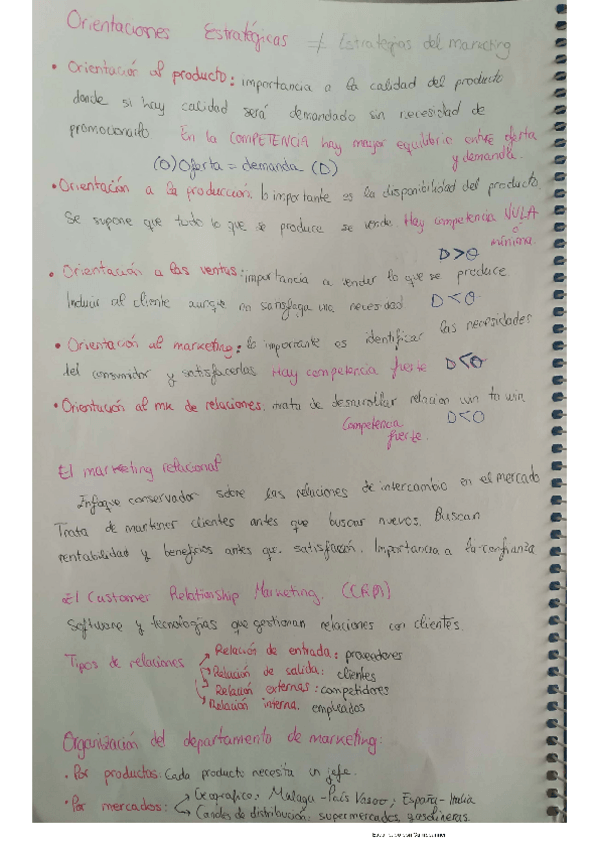 Orientaciones Estratégicas ≠ Estrategias del marketing
• Orientación al producto: importancia a la calidad del producto
donde si hay calidad será demandado sin necesidad de
promocionarlo En la COMPETENCIA hay mayor equilibrio entre oferta
y demanda.
(O) Oferta = demanda (D)
• Orientación a la producción. lo importante es la disponibilidad del producto.
Se supone que todo lo que se produce se vende Hay competencia NULA
o
mínima.
D>O
• Orientación a las ventas: importancia a vender lo que se produce
Inducir al cliente aunque no satisfaga una necesidad D<O
• Orientación al marketing: lo importante es identificar las necesidades
del consumidor y satisfacerlas Hay competencia fuerte D<O
• Orientación al mk de relaciones. trata de desarrollar relacion win to win
Competencia D<O
fuerte.
El marketing relacional
Enfoque conservador sobre las relaciones de intercambio en el mercado
Trata de mantener clientes antes que buscar nuevos. Buscan
rentabilidad y beneficios antes que satisfacción. Importancia a la confianza
El Customer Relationship Marketing. (CRM)
Software y tecnologías que gestionan relaciones con clientes.
Tipos de relaciones → Relación de entrada: proveedores
→ Relación de salida: clientes
→ Relación externas: competidores
→ Relación interna. empleados
Organización del departamento de marketing:
• Por productos. Cada producto necesita un jefe.
• Por mercados: → Geografico: Malaga - País Vasco; España - Italia
→ Canales de distribución: supermercados, gasolineras.